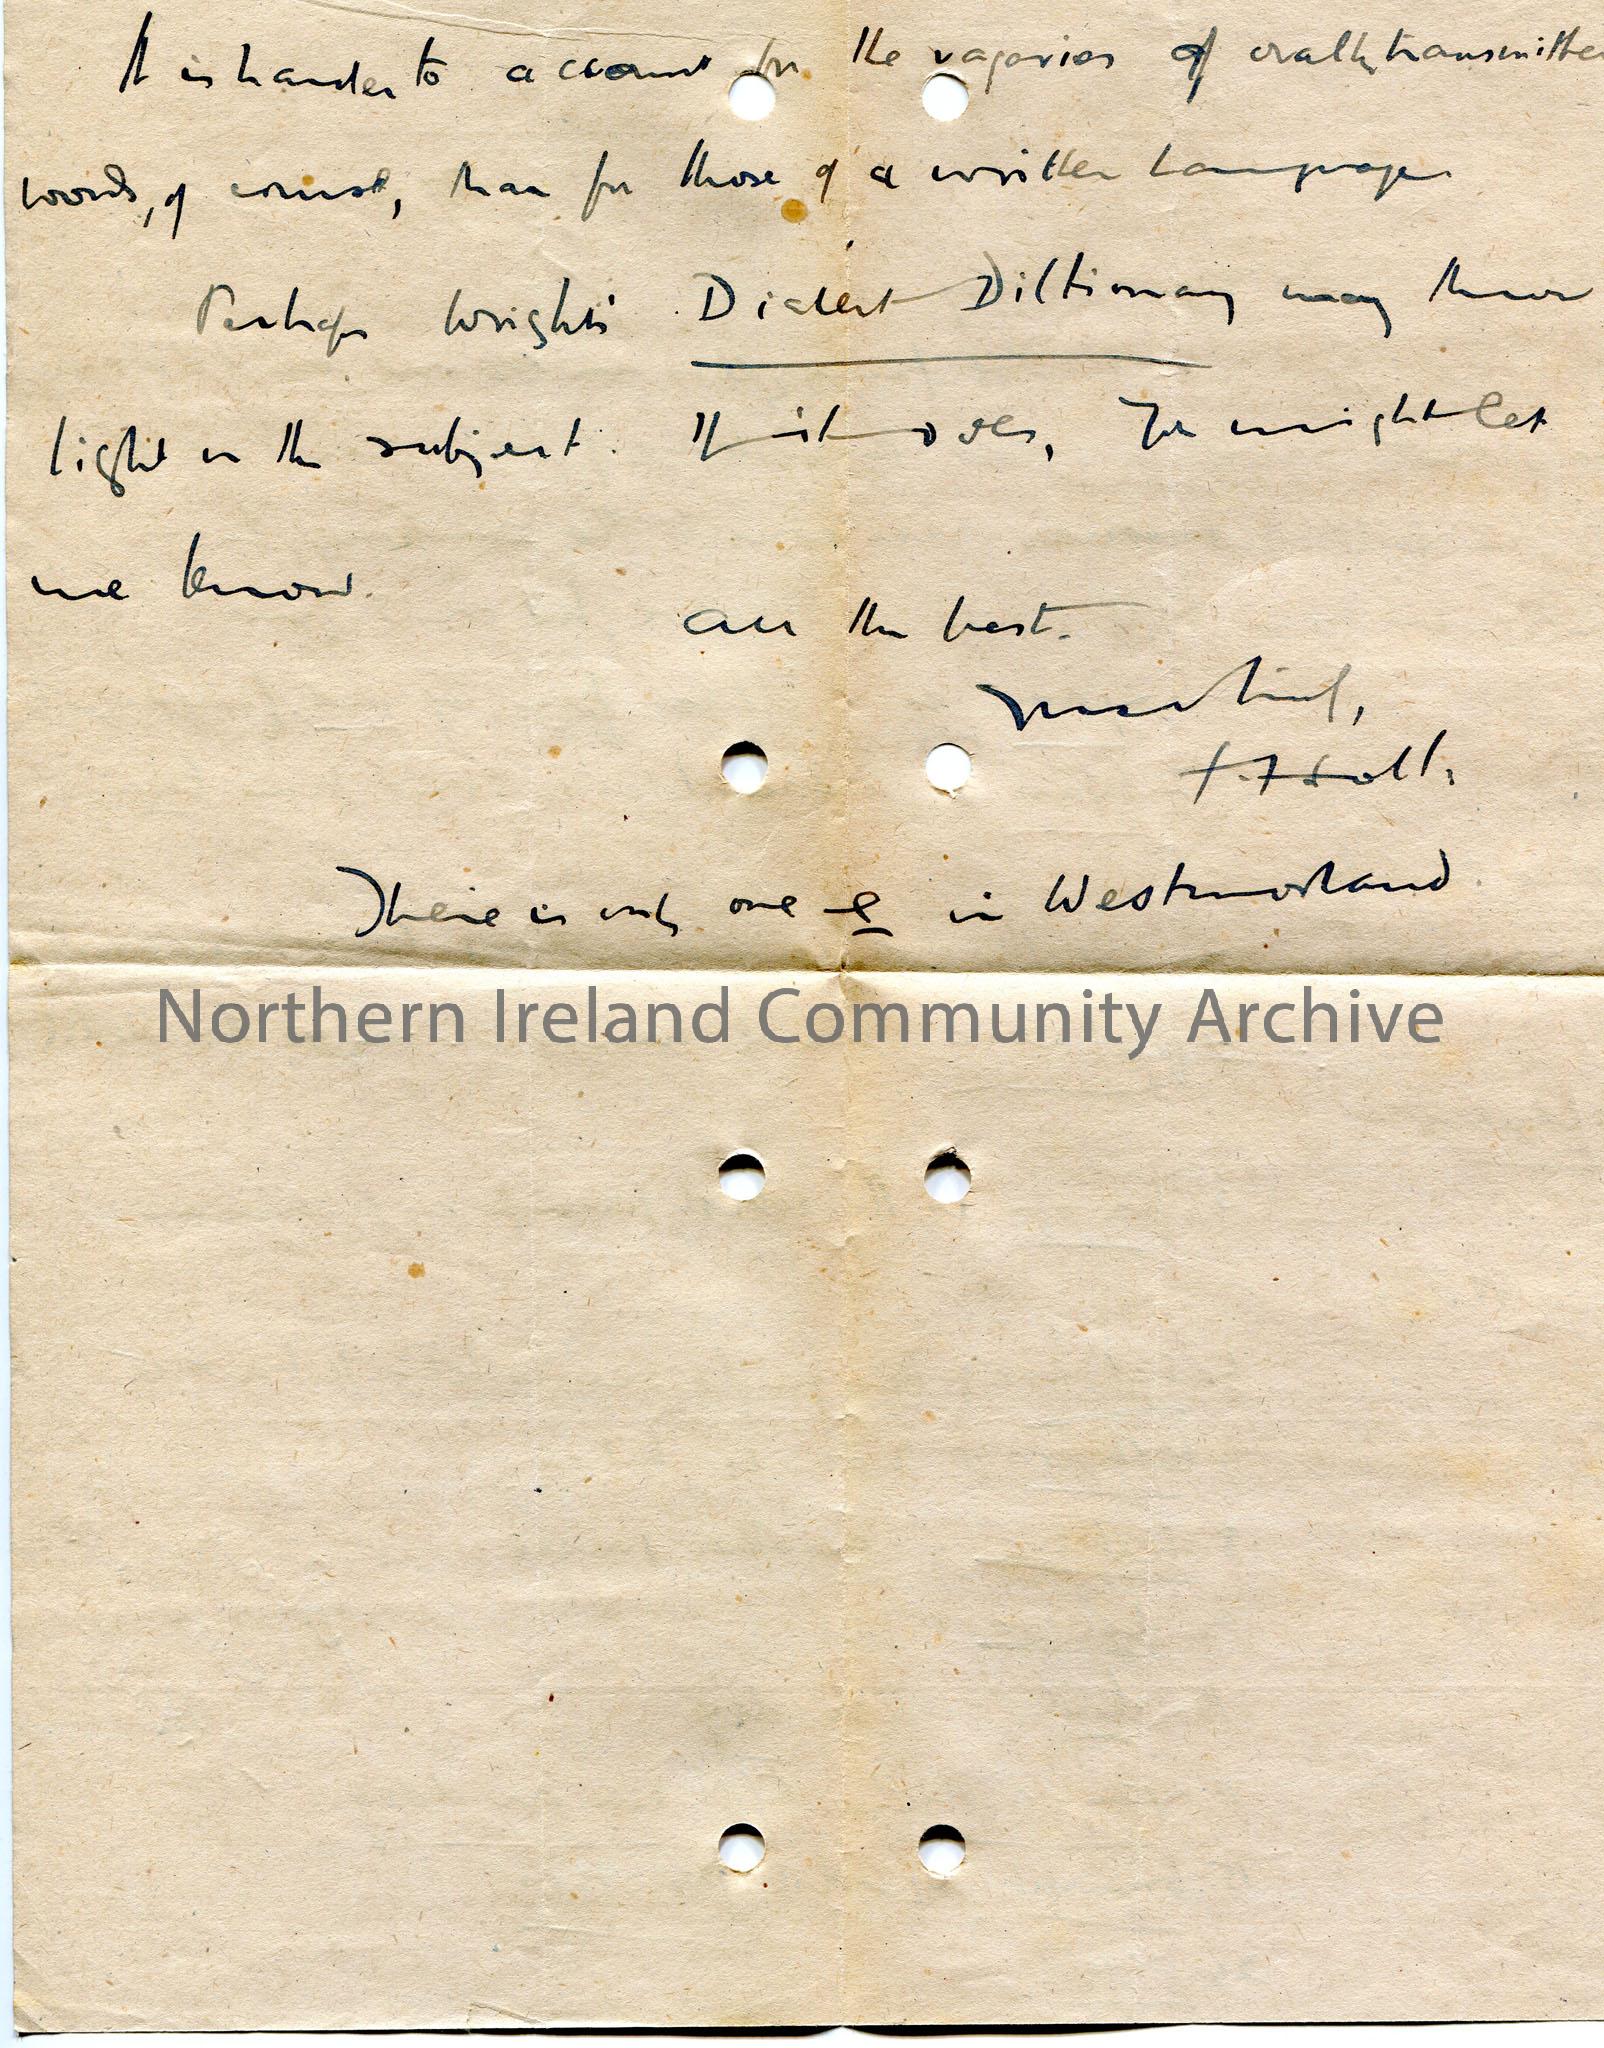 It is harder to account for the vagaries of orally transmitted
words, of course, than for those of a written language.
Perhaps Wright's Dialect Dictionary may throw
light on the subject. If it does, you might let
me know.
All the best.
There is only one e in Westmorland.
Northern Ireland Community Archive